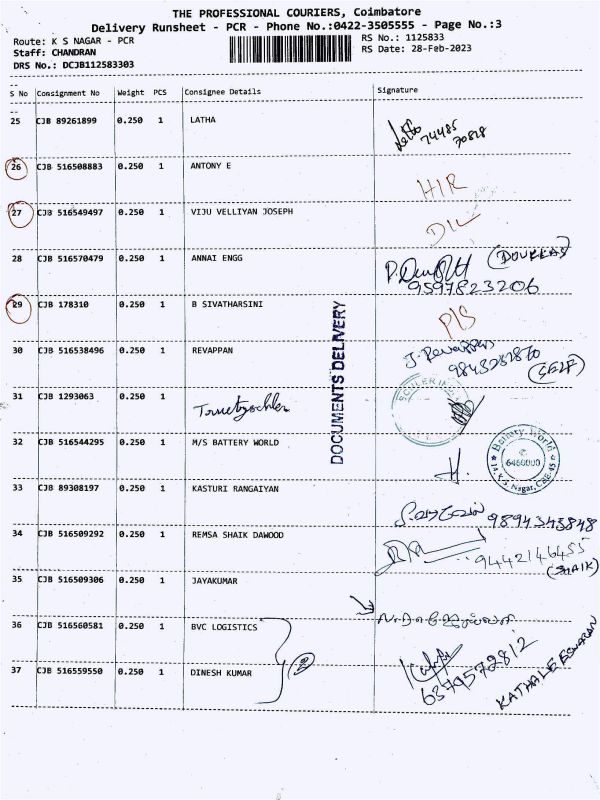 THE PROFESSIONAL COURIERS, Coimbatore
Delivery Runsheet - PCR - Phone No.:0422-3505555 - Page No.:3
Route: K S NAGAR - PCR
RS No.: 1125833
Staff: CHANDRAN
RS Date: 28-Feb-2023
DRS No.: DCJB112583303
S No Consignment No Weight PCS Consignee Details Signature
25 CJB 89261899 0.250 1 LATHA
Latha 74485
70828
26 CJB 516508883 0.250 1 ANTONY E
HIR
27 CJB 516549497 0.250 1 VIJU VELLIYAN JOSEPH
DIL
28 CJB 516570479 0.250 1 ANNAI ENGG
(DOUKKAS)
9597823206
29 CJB 178310 0.250 1 B SIVATHARSINI
PIS
DOCUMENTS DELIVERY
30 CJB 516538496 0.250 1 REVAPPAN
J. Revappan
9843232870
(SELF)
31 CJB 1293063 0.250 1
32 CJB 516544295 0.250 1 M/S BATTERY WORLD
H.
Battery World
6460000
14, K.S. Nagar, CBE-45
33 CJB 89308197 0.250 1 KASTURI RANGAIYAN
9894343848
34 CJB 516509292 0.250 1 REMSA SHAIK DAWOOD
9442146455
(SHAIK)
35 CJB 516509306 0.250 1 JAYAKUMAR
36 CJB 516560581 0.250 1 BVC LOGISTICS
2
37 CJB 516559550 0.250 1 DINESH KUMAR
6379572812
KATHALEESWARAN